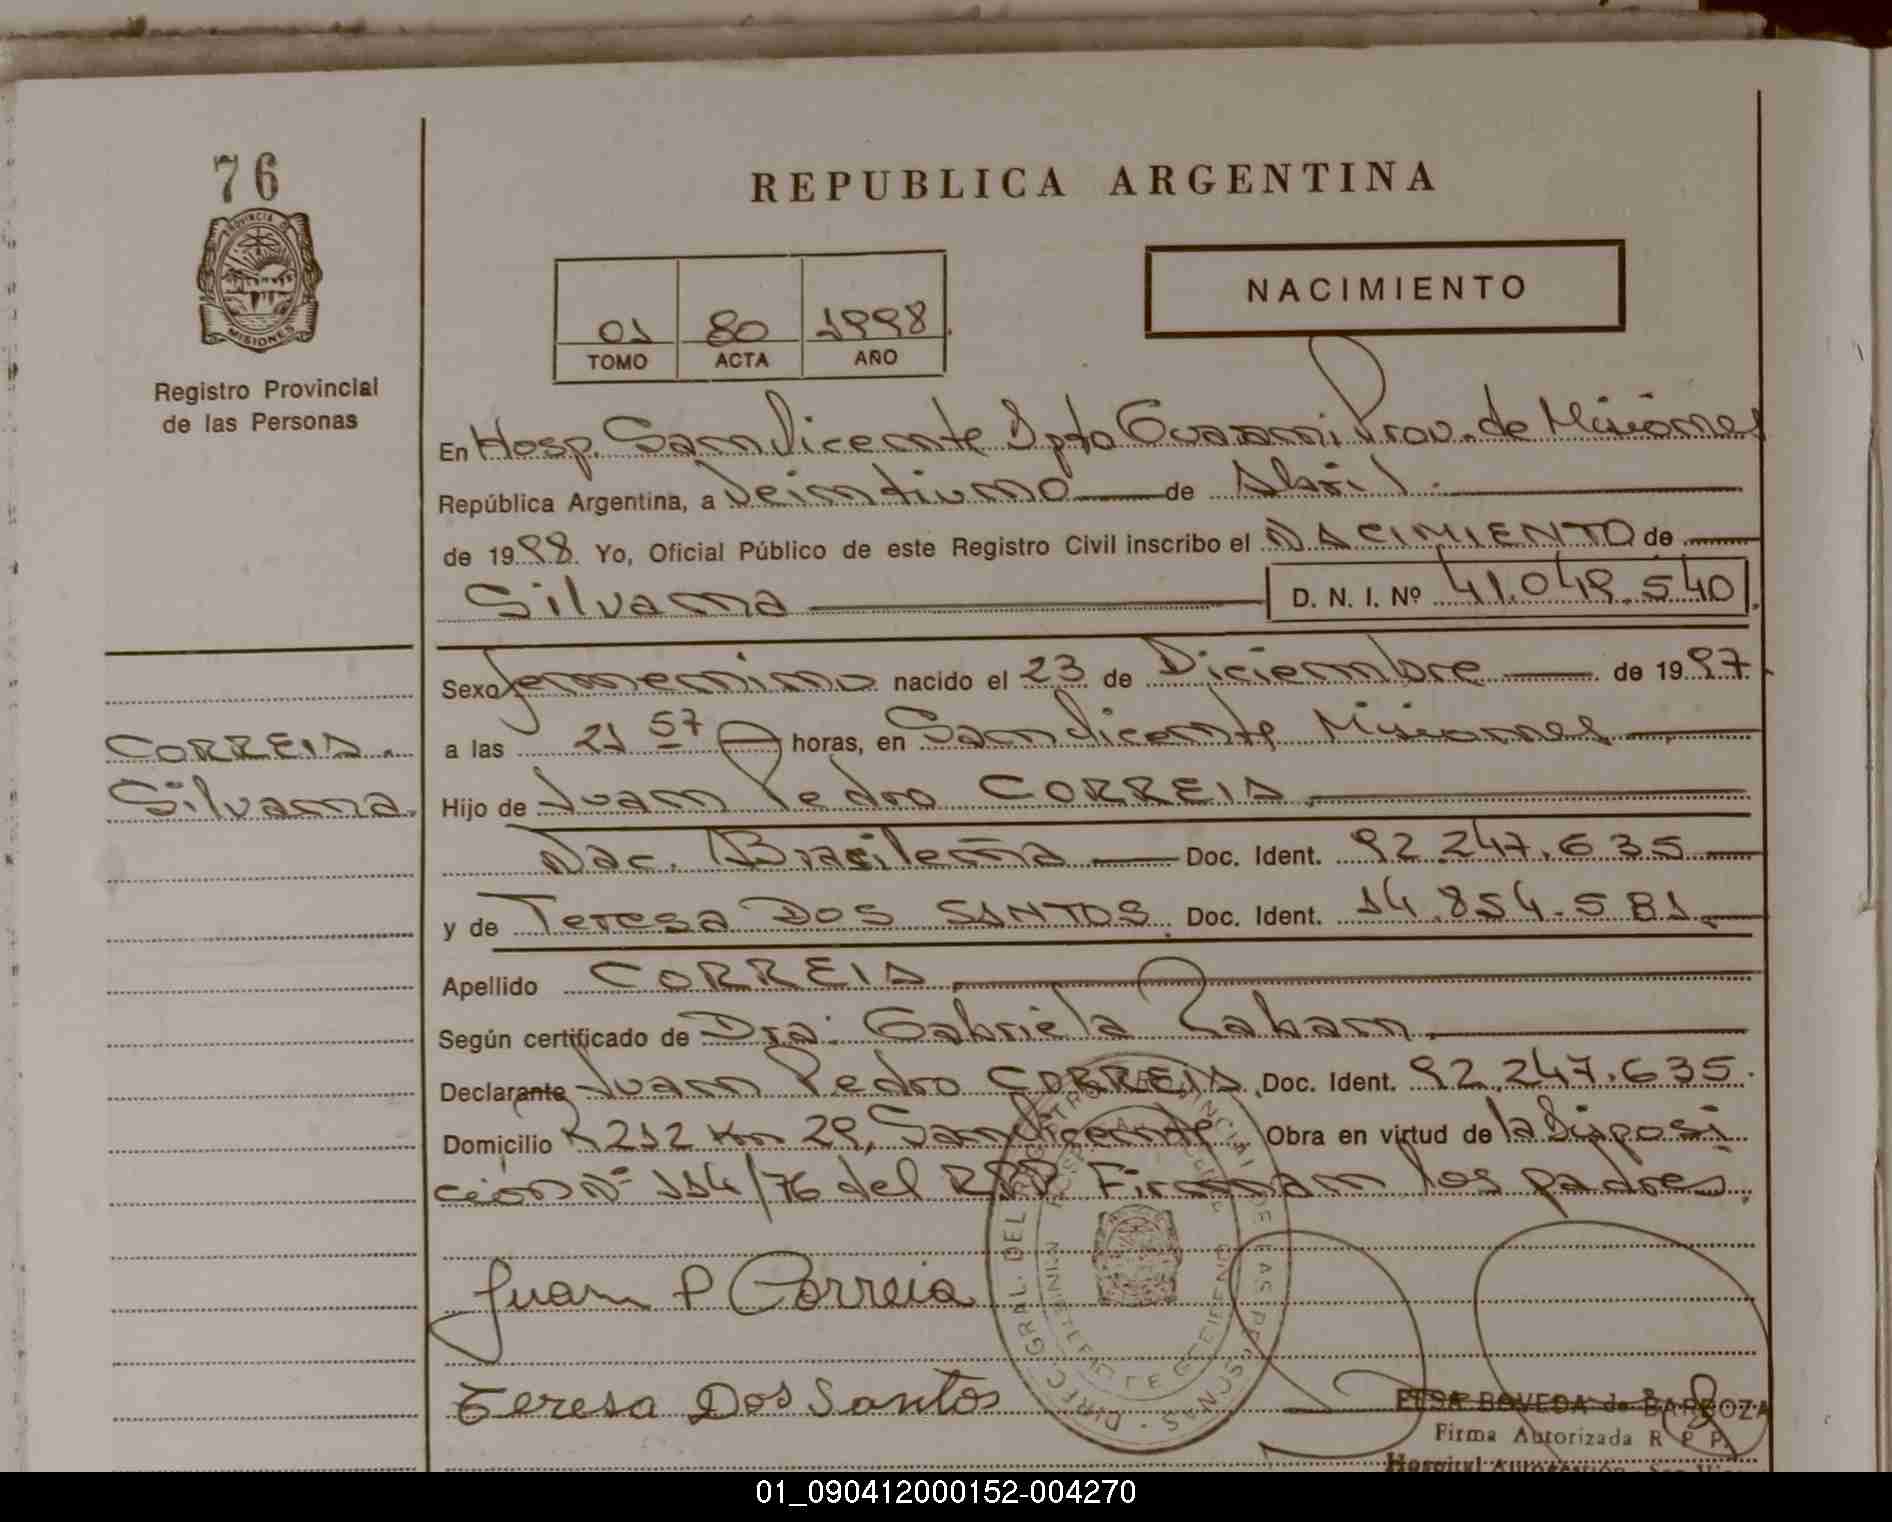 76
PROVINCIA DE
MISIONES
Registro Provincial
de las Personas
REPUBLICA ARGENTINA
NACIMIENTO
01 80 1998
TOMO ACTA AÑO
En Hosp. San Vicente Dpto Guarani Prov. de Misiones
República Argentina, a Veintiuno de Abril.
de 1998 Yo, Oficial Público de este Registro Civil inscribo el NACIMIENTO de
Silvana D. N. I. Nº 41.049.540
Sexo femenino nacido el 23 de Diciembre de 1997
a las 21 57 horas, en San Vicente Misiones
CORREIA.
Silvana.
Hijo de Juan Pedro CORREIA.
Nac. Brasileña Doc. Ident. 92.247.635
y de Teresa DOS SANTOS. Doc. Ident. 14.854.581.
Apellido CORREIA.
Según certificado de Dra. Gabriela Raham.
Declarante Juan Pedro CORREIA. Doc. Ident. 92.247.635.
Domicilio R 212 Km 29, San Vicente. Obra en virtud de la Disposi
cion Nº 114/76 del RPP. Firman los padres.
Juan P Correia
Teresa Dos Santos
ELSA BOVEDA de BARBOZA
Firma Autorizada R P P.
01_090412000152-004270